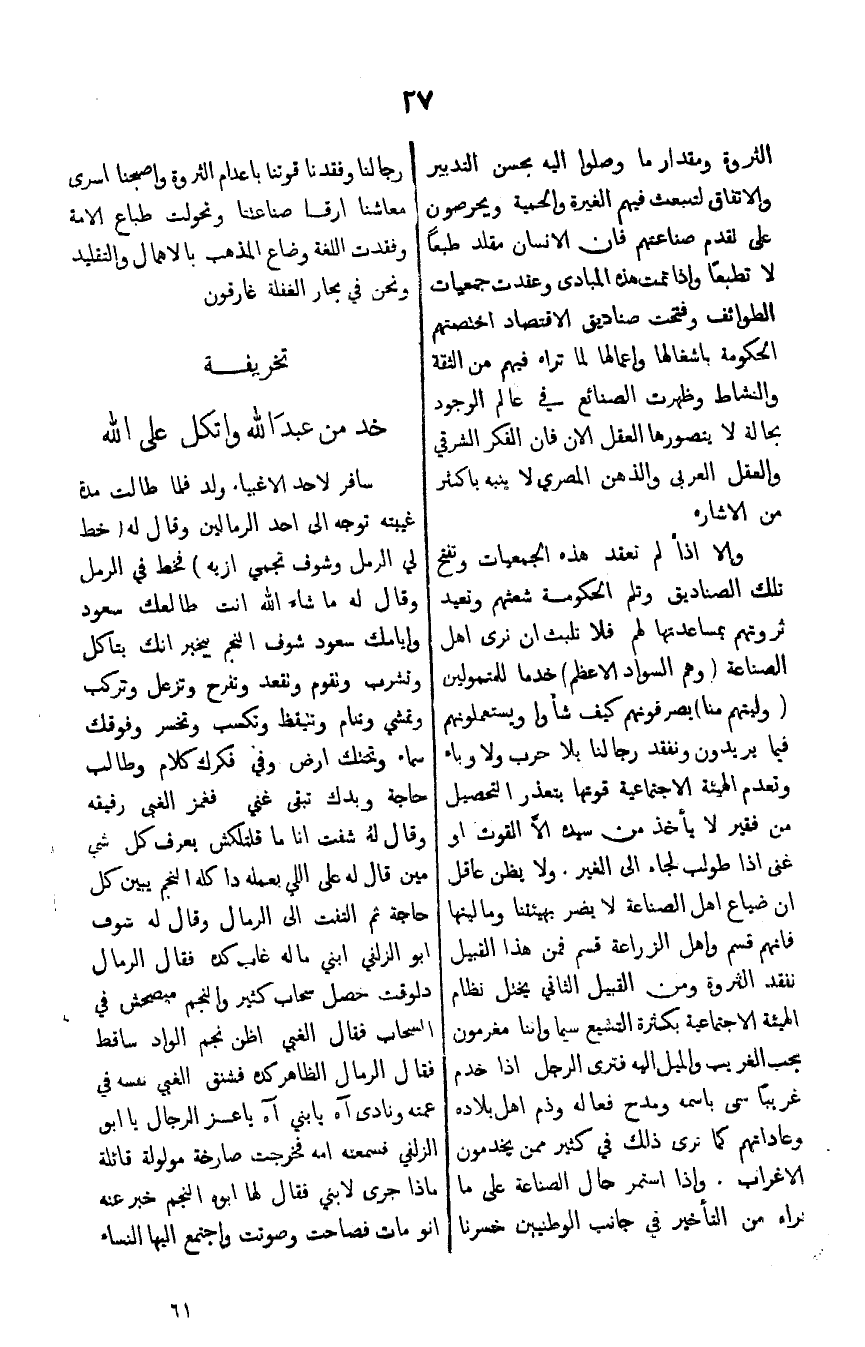 ٢٧
الثروة ومقدار ما وصلوا اليه بحسن التدبير
والاتفاق لتبعث فيهم الغيرة والحمية ويحرصون
على تقدم صناعتهم فان الانسان مقلد طبعاً
لا تطبعًا واذا تمت هذه المبادى وعقدت جمعيات
الطوائف وفتحت صناديق الاقتصاد اختصتهم
الحكومة باشغالها واعمالها لما تراه فيهم من الثقة
والنشاط وظهرت الصنائع في عالم الوجود
بحالة لا يتصورها العقل الان فان الفكر الشرقي
والعقل العربي والذهن المصري لا ينبه باكثر
من الاشاره
والا اذا لم تعقد هذه الجمعيات وتفتح
تلك الصناديق وتلم الحكومة شعثهم وتعيد
ثروتهم بمساعدتها لهم فلا تلبث ان نرى اهل
الصناعة ( وهم السواد الاعظم) خدما للمتمولين
( وليتهم منا) يصرفونهم كيف شأوا ويستعملونهم
فيما يريدون ونفقد رجالنا بلا حرب ولا وباء
وتعدم الهيئة الاجتماعية قوتها بتعذر التحصيل
من فقير لا يأخذ من سيده الاَّ القوت او
غنى اذا طولب لجاء الى الغير . ولا يظن عاقل
ان ضياع اهل الصناعة لا يضر بهيئتنا وماليتها
فانهم قسم واهل الزراعة قسم فمن هذا القبيل
نفقد الثروة ومن القبيل الثاني يختل نظام
الهيئة الاجتماعية بكثرة التشيع سيما واننا مغرمون
بحب الغريب والميل اليه فترى الرجل اذا خدم
غريبًا سمى باسمه ومدح فعاله وذم اهل بلاده
وعاداتهم كما نرى ذلك في كثير ممن يخدمون
الاغراب . واذا استمر حال الصناعة على ما
نراه من التأخير في جانب الوطنيين خسرنا
رجالنا وفقدنا قوتنا باعدام الثروة واصبحنا اسرى
معاشنا ارقا صناعتنا وتحولت طباع الامة
وفقدت اللغة وضاع المذهب بالاهمال والتقليد
ونحن في بحار الغفلة غارقون
تخريفة
خد من عبد الله واتكل على الله
سافر لاحد الاغبياء ولد فلما طالت مدة
غيبته توجه الى احد الرمالين وقال له ( خط
لي الرمل وشوف نجمي ازيه ) فخط في الرمل
وقال له ما شاء الله انت طالعك سعود
وايامك سعود شوف النجم يخبر انك بتاكل
وتشرب وتقوم وتقعد وتفرح وتزعل وتركب
وتمشي وتنام وتتيقظ وتكسب وتخسر وفوقك
سماء وتحتك ارض وفي فكرك كلام وطالب
حاجة وبدك تبقى غني فغمز الغبي رفيقه
وقال لهُ شفت انا ما قلتلكش يعرف كل شي
مين قال له على اللي بعمله دا كله النجم يبين كل
حاجة ثم التفت الى الرمال وقال له شوف
ابو الزلفي ابني ماله غايب كده فقال الرمال
دلوقت حصل سحاب كثير والنجم مبصحش في
السحاب فقال الغبي اظن نجم الواد ساقط
فقال الرمال الظاهر كده فشنق الغبي نفسه في
عمته ونادى آه يابني آه ياعز الرجال يا ابو
الزلفي فسمعته امه فخرجت صارخة مولولة قائلة
ماذا جرى لابني فقال لها ابوه النجم خبر عنه
انو مات فصاحت وصوتت واجتمع اليها النساء
٦١